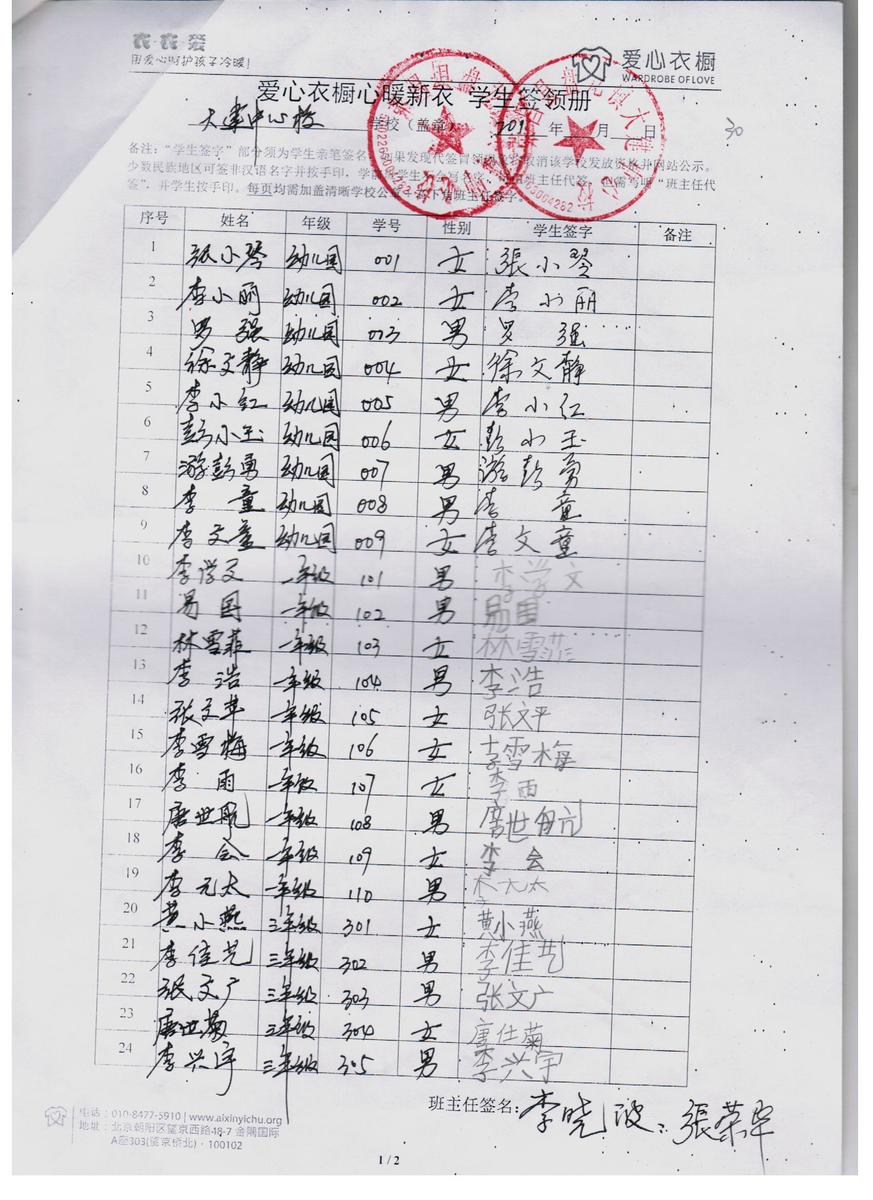 衣衣爱
用爱心呵护孩子冷暖!
爱心衣橱
WARDROBE OF LOVE
爱心衣橱心暖新衣 学生签领册
大建中心校 学校（盖章） 201 年 月 日
30
备注：“学生签字”部分须为学生亲笔签名，如果发现代签冒领 取消该学校发放资格并网站公示。
少数民族地区可签非汉语名字并按手印。学 学生 会写名字， 班主任代签，但需写明“班主任代
签”，并学生按手印。每页均需加盖清晰学校公章 班主任签字。
序号 姓名 年级 学号 性别 学生签字 备注
1 张小琴 幼儿园 001 女 張小琴
2 李小丽 幼儿园 002 女 李小丽
3 罗强 幼儿园 003 男 罗强
4 徐文静 幼儿园 004 女 徐文静
5 李小红 幼儿园 005 男 李小红
6 彭小玉 幼儿园 006 女 彭小玉
7 游彭勇 幼儿园 007 男 游彭勇
8 李童 幼儿园 008 男 李童
9 李文童 幼儿园 009 女 李文童
10 李学文 一年级 101 男 李学文
11 易国 一年级 102 男 易国
12 林雪菲 一年级 103 女 林雪菲
13 李浩 一年级 104 男 李浩
14 张文苹 一年级 105 女 张文平
15 李雪梅 一年级 106 女 李雪梅
16 李雨 一年级 107 女 李雨
17 唐世航 一年级 108 男 唐世航
18 李会 一年级 109 女 李会
19 李元太 一年级 110 男
20 黄小燕 三年级 301 女 黄小燕
21 李佳艺 三年级 302 男 李佳艺
22 张文广 三年级 303 男 张文广
23 唐世菊 三年级 304 女 唐仕菊
24 李兴宇 三年级 305 男 李兴宇
班主任签名：李晓波；張荣华
电话：010-8477-5910 | www.aixinyichu.org
地址：北京朝阳区望京西路48-7 金隅国际
A座303(望京桥北)·100102
1 / 2